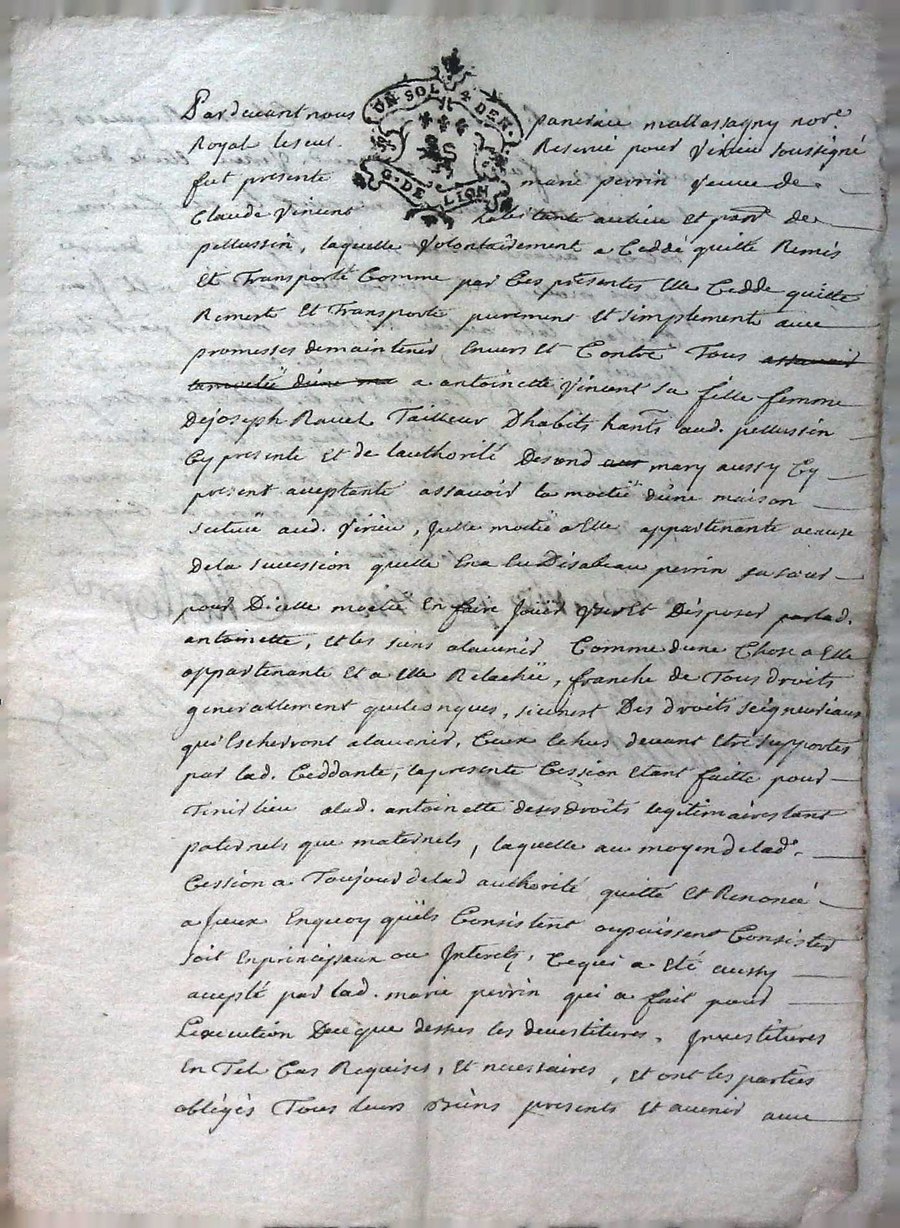 UN SOL 4 DEN.
G. DE LION
Pardevant nous pancrace mattassagny nore.
Royal le seul Reservé pour Virieu soussigné
fut presente marie perrin veuve de
Claude Vincent habitante au lieu et parr. de
pellussin, laquelle volontairement a Ceddé quitté Remis
Et Transporté Comme par Ces presentes Elle Cedde quitte
Remest Et Transporte purement Et simplement avec
promesses de maintenir Envers Et Contre Tous assavoir
la moitié d'une ma a antoinette Vincent sa fille femme
De joseph Ravel Tailleur D'habits hants aud. pellussin
Cy presente et de l'authorité Desond mary aussy Cy
present acceptante assavoir la moitié dune maison
scituë aud. Virieu, jcelle moitié a Elle appartenante acause
De la sucession quelle Disabeau perrin sa sœur
pour Dicelle moitié En faire Jouir user Et Disposer par lad.
antoinette, Et les siens alavenir Comme dune Chose a Elle
appartenante Et a Elle Relachéë, franche de Tous droits
generallement quelconques, sicenest Des droits seigneuriaux
qui Escherront alavenir, Ceux Echus devant Etre supportés
par lad. Ceddante, la presente Cession Etant faitte pour
Tenir lieu alad. antoinette de ses droits legitimaires tant
paternels que maternels, laquelle au moyen de lad.
Cession a Toujour de lad authorité quitté Et Renoncé
a jceux En quoy qu'ils Consistent ou puissent Consister
soit En principaux ou Interets, Ce qui a Eté aussy
accepté par lad. marie perrin qui a fait pour
L'execution De ce que dessus les devestitures, Investitures
En Tel Cas Requises, Et necessaires, Et ont les parties
obligés Tous leurs Biens presents Et avenir avec